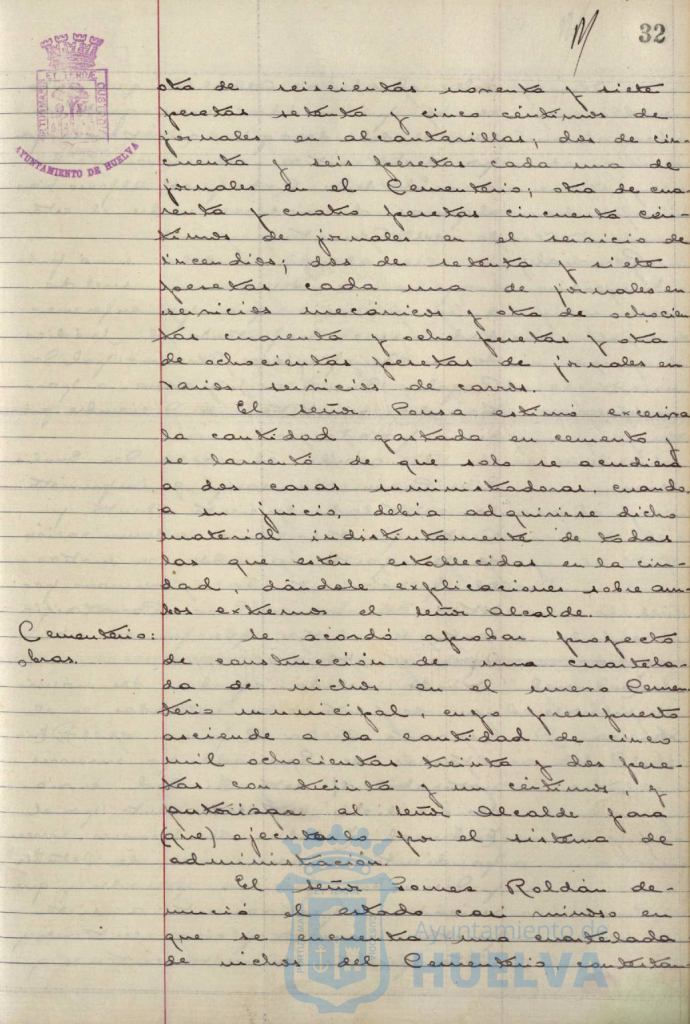 32
otra de seiscientas noventa y siete
pesetas setenta y cinco céntimos de
jornales en alcantarillas; dos de cin-
cuenta y seis pesetas cada una de
jornales en el Cementerio; otra de cua-
renta y cuatro pesetas cincuenta cén-
timos de jornales en el servicio de
incendios; dos de setenta y siete
pesetas cada una de jornales en
servicios mecánicos y otra de ochocien
tas cuarenta y ocho pesetas y otra
de ochocientas pesetas de jornales en
varios servicios de carros.
El señor Ponsa estimó excesiva
la cantidad gastada en cemento y
se lamentó de que solo se acudiera
a dos casas suministradoras, cuando,
a su juicio, debia adquirirse dicho
material indistintamente de todas
las que estén establecidas en la ciu-
dad, dándole explicaciones sobre am-
bos extremos el señor Alcalde.
Cementerio:
obras.
Se acordó aprobar proyecto
de construcción de una cuartela-
da de nichos en el nuevo Cemen
terio municipal, cuyo presupuesto
asciende a la cantidad de cinco
mil ochocientas treinta y dos pese-
tas con treinta y un céntimos, y
autorizar al señor Alcalde para
(que) ejecutarlo por el sistema de
administración.
El señor Gomez Roldán de-
nunció el estado casi ruinoso en
que se encuentra una cuartelada
de nichos del Cementerio contestan-
AYUNTAMIENTO DE HUELVA
Ayuntamiento de
HUELVA